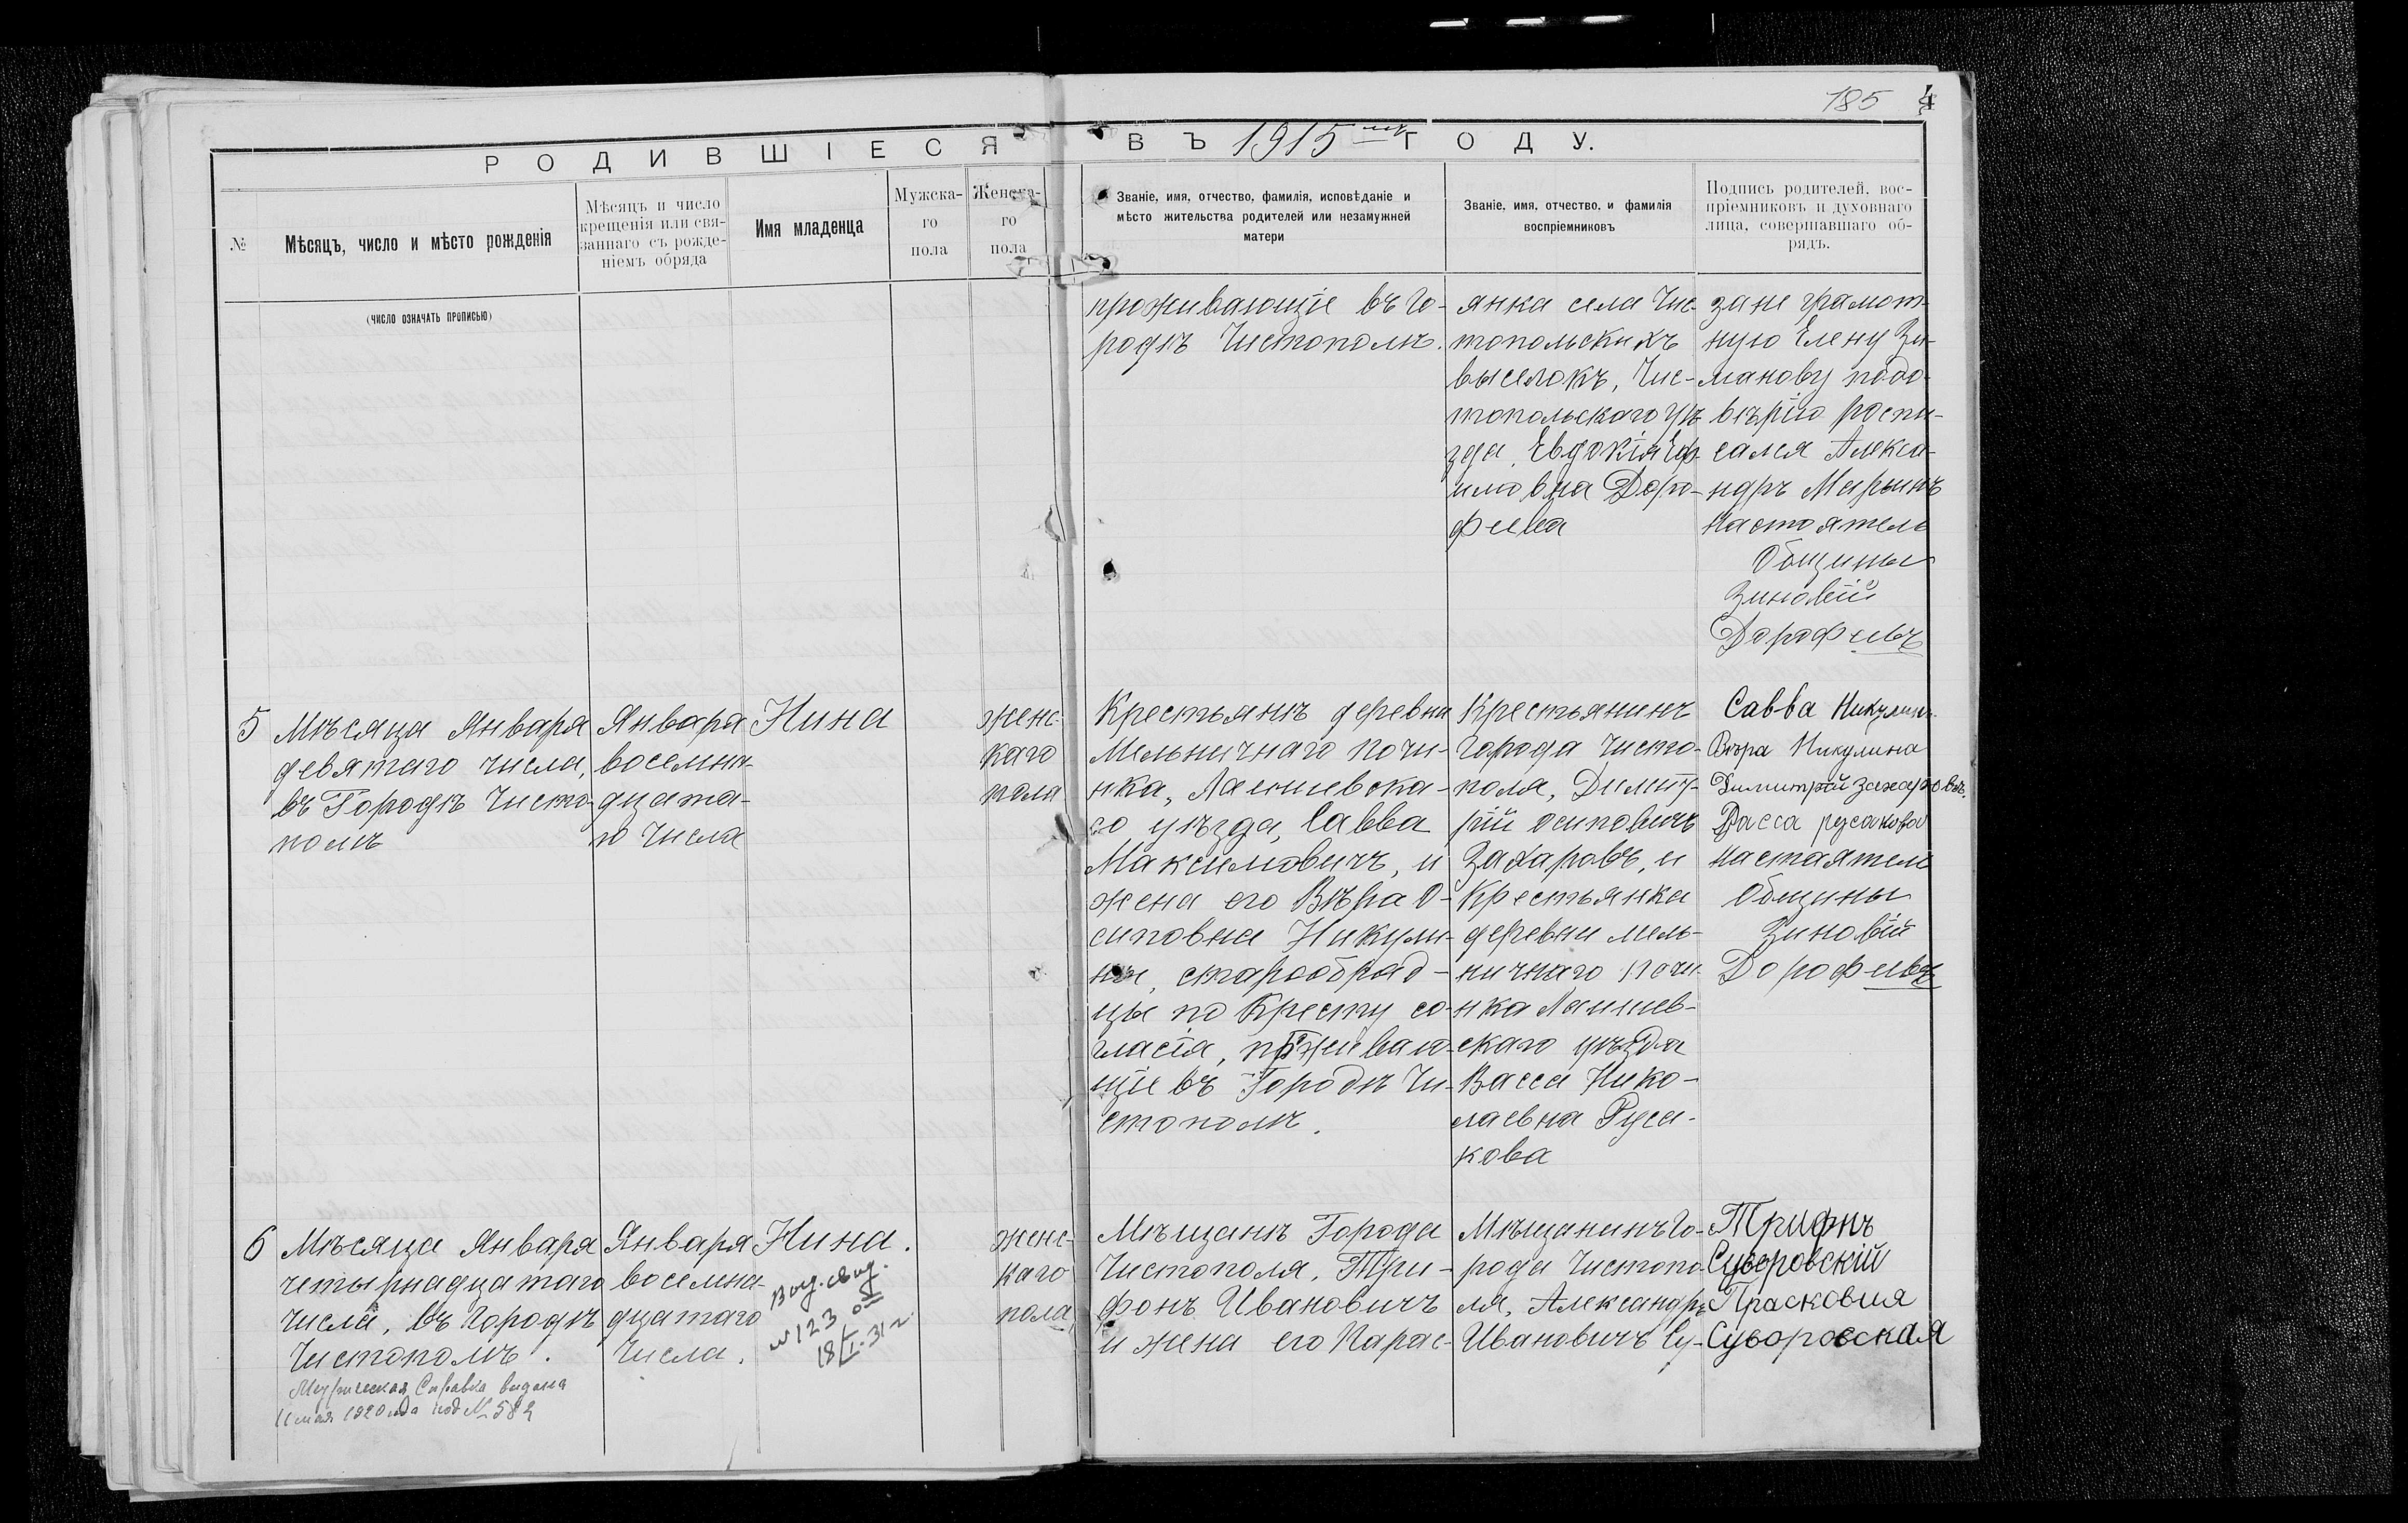 185 4
РОДИВШІЕСЯ ВЪ 1915 мъ ГОДУ.
№
Мѣсяцъ, число и мѣсто рожденія
(число означать прописью)
Мѣсяцъ и число
крещенія или свя-
заннаго съ рожде-
ніемъ обряда
Имя младенца
Мужска-
го
пола
Женска-
го
пола
Званіе, имя, отчество, фамилія, исповѣданіе и
мѣсто жительства родителей или незамужней
матери
Званіе, имя, отчество, и фамилія
воспріемниковъ
Подпись родителей, вос-
пріемниковъ и духовнаго
лица, совершавшаго об-
рядъ.
проживающіе въ Го-
родѣ Чистополѣ.
янка села Чис-
топольскихъ
выселокъ, Чис-
топольскаго уѣ
зда, Евдокія Еф-
имовна Доро-
феева
за не грамот-
ную Елену Зи-
манову подо-
вѣрію роспи-
сался Алекса-
ндръ Марьинъ
Настоятель
Общины
Зиновій
Дорофеевъ
5
Мѣсяца Января
девятаго числа,
въ Городѣ Чисто-
полѣ
Января
восемна-
дцата-
го Числа
Нина
женс-
каго
пола
Крестьянъ деревни
Мельничнаго Почи-
нка, Лаишевска-
го уѣзда, Савва
Максимовичъ, и
жена его Вѣра О-
сиповна Никули-
ны, старообряд-
цы по Кресту со-
гласія, проживаю-
щіе въ Городѣ Чи-
стополѣ.
Крестьянинъ
Города Чисто-
поля, Димит-
рій Осиповичъ
Захаровъ, и
Крестьянка
деревни мель-
ничнаго Почи-
нка Лаишев-
скаго уѣзда
Васса Нико-
лаевна Руса-
кова
Савва Никулинъ.
Вѣра Никулина
Димитрій Захаровъ.
Васса русакова
Настаятель
Общины
Зиновій
Дорофеевъ
6
Мѣсяца Января
четырнадцатаго
Числа, въ Городѣ
Чистополѣ.
Метрическая Справка выдана
11 мая 1920 года под № 582
Января
восемна-
дцатаго
Числа.
Нина.
Выд. свид.
№ 123 от
18/I-31 г.
женс-
каго
пола
Мѣщанъ Города
Чистополя, Три-
фонъ Ивановичъ
и жена его Парас-
Мѣщанинъ Го-
рода Чистопо-
ля, Александръ
Ивановичъ Су-
Трифнъ
Суворовскій
Прасковия
Суворовская